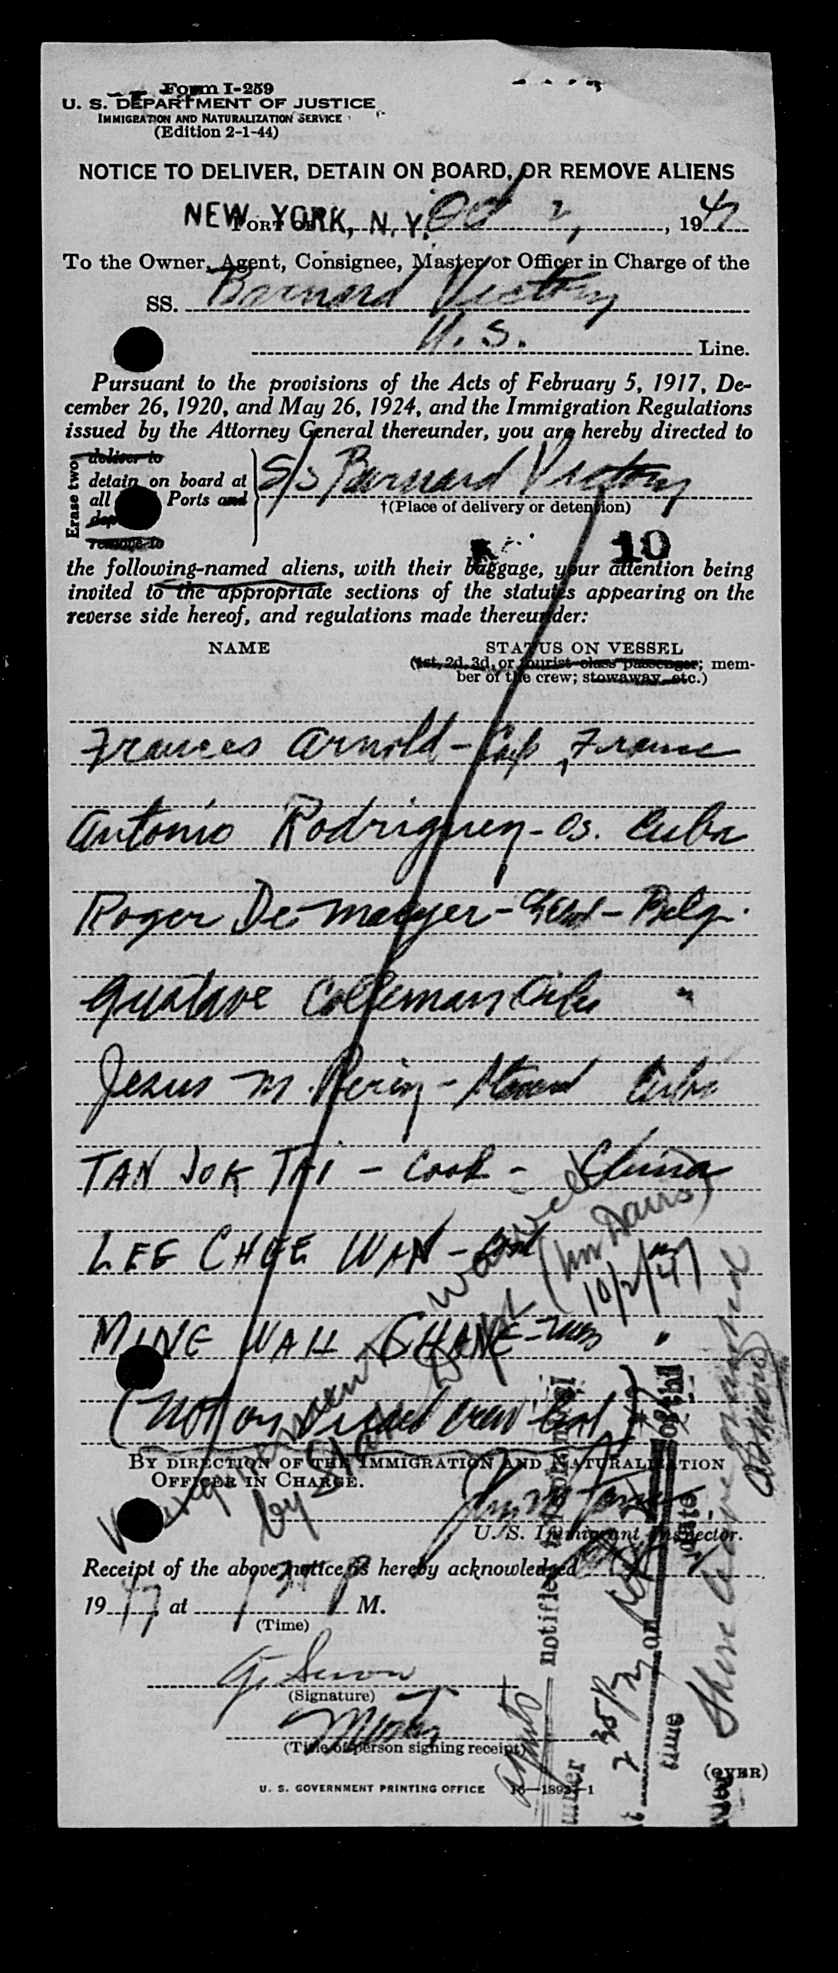 Form I-259
U. S. DEPARTMENT OF JUSTICE
IMMIGRATION AND NATURALIZATION SERVICE
(Edition 2-1-44)
NOTICE TO DELIVER, DETAIN ON BOARD, OR REMOVE ALIENS
NEW YORK, N. Y. Oct 2, 1947
To the Owner, Agent, Consignee, Master or Officer in Charge of the
SS. Barnard Victory
U.S. Line.
Pursuant to the provisions of the Acts of February 5, 1917, De-
cember 26, 1920, and May 26, 1924, and the Immigration Regulations
issued by the Attorney General thereunder, you are hereby directed to
Erase two
deliver to
detain on board at
all Ports and
remove to
S/S Barnard Victory
†(Place of delivery or detention)
10
the following-named aliens, with their baggage, your attention being
invited to the appropriate sections of the statutes appearing on the
reverse side hereof, and regulations made thereunder:
NAME STATUS ON VESSEL
(1st, 2d, 3d, or tourist class passenger; mem-
ber of the crew; stowaway, etc.)
Frances Arnold - France
Antonio Rodriguez - OS. Cuba
Roger De Maeyer - Belg.
Gustave Colleman Oiler "
Jesus M. - Cuba
TAN JOK TAI - Cook - China
LEE CHEE WAN -
MING WAH - "
(Not on crew list)
waived
(Wm Davis)
10/2/47
by State Dept
BY DIRECTION OF THE IMMIGRATION AND NATURALIZATION
OFFICER IN CHARGE.
U. S. Immigrant Inspector.
Receipt of the above notice is hereby acknowledged
1947 at P M.
(Time)
(Signature)
(Title of person signing receipt)
notified
on
time
Shore leave
(OVER)
U. S. GOVERNMENT PRINTING OFFICE